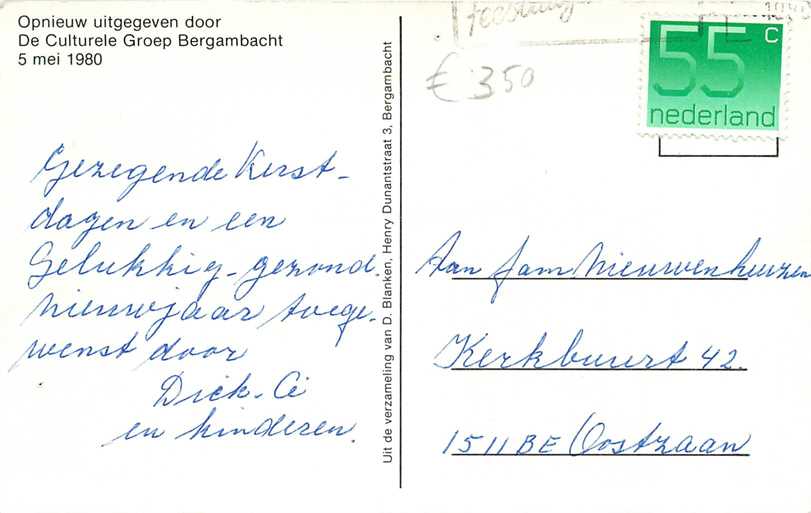 Opnieuw uitgegeven door
De Culturele Groep Bergambacht
5 mei 1980
Gezegende Kerst-
dagen en een
Gelukkig-gezond.
nieuwjaar toege-
wenst door
Dick-Ci
en kinderen.
Uit de verzameling van D. Blanken, Henry Dunantstraat 3, Bergambacht
€ 350
55 c
nederland
Aan fam Nieuwenhuizen
Kerkbuurt 42.
1511 BE Oostzaan